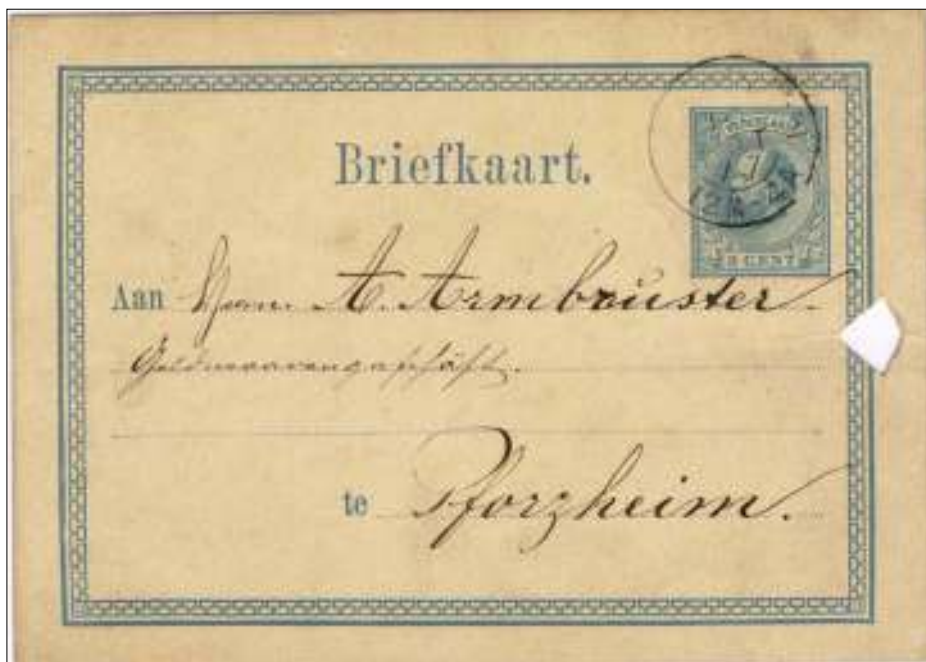 Briefkaart.
5 CENT
Aan Herrn A. Armbruster
Goldwaarengeschäft.
te Pforzheim.